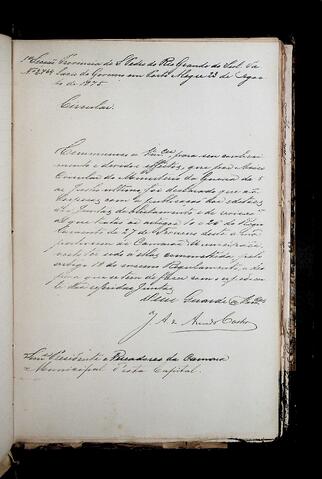 1ª Secção Provincia de S. Pedro do Rio Grande do Sul. Pa
Nº 2764 lacio do Governo em Porto Alegre 23 de Agos
to de 1875
Circular.
Communico a Vmces. para seu conheci
mento e devidos effeitos, que por Aviso
Circular do Ministerio da Guerra de 5
de Julho ultimo foi declarado que as
despesas com a publicação dos editaes
das Juntas de alistamento e de revisão
de que trata o artigo 26 do Regu
lamento de 27 de Fevereiro deste anno
as Camaras Municipaes
sido a estas commettida pelo
artigo 18 do mesmo Regulamento, a des
peza que se tem de fazer com expedien
te das referidas Juntas.
Deus Guarde a Vmces.
J. A. de Azevedo Castro
Snres. Presidente e Vereadores da Camara
Municipal desta Capital.